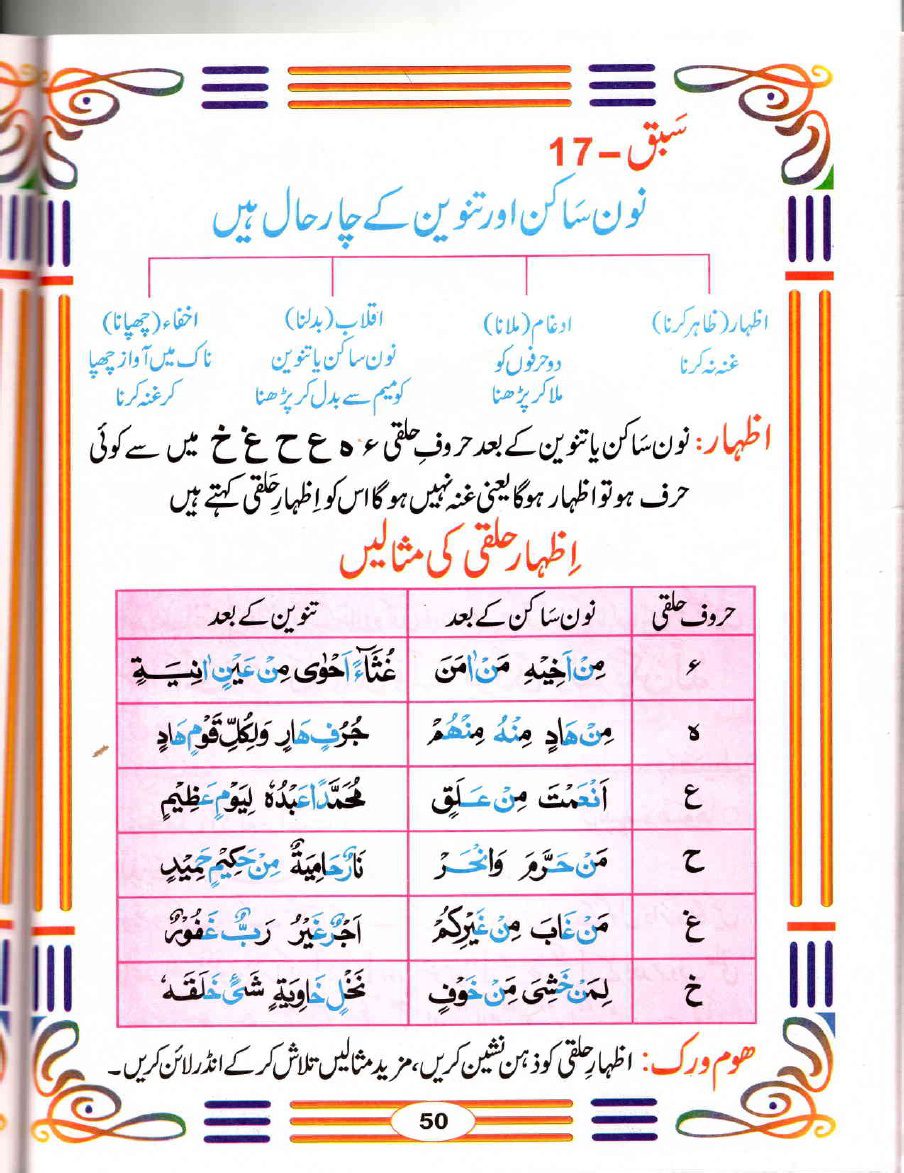 سَبق – 17
نون سَاکن اور تنوین کے چار حال ہیں
اظہار (ظاہر کرنا)
غنہ نہ کرنا
ادغام (ملانا)
دو حرفوں کو
ملا کر پڑھنا
اقلاب (بدلنا)
نون ساکن یا تنوین
کو میم سے بدل کر پڑھنا
اخفاء (چھپانا)
ناک میں آواز چھپا
کر غنہ کرنا
اظہار: نون سَاکن یا تنوین کے بعد حروفِ حلقی ء ہ ع ح غ خ میں سے کوئی
حرف ہو تو اظہار ہوگا یعنی غنہ نہیں ہوگا اس کو اِظہارِ حَلقی کہتے ہیں
اِظہار حلقی کی مثالیں
حروف حلقی نون سَاکن کے بعد تنوین کے بعد
ء مِنْ اَخِیْهِ مَنْ اٰمَنَ غُثَآءً اَحْوٰی مِنْ عَیْنٍ اٰنِیَةٍ
ہ مِنْ هَادٍ مِنْهُ مِنْهُمْ جُرُفٍ هَارٍ وَلِکُلِّ قَوْمٍ هَادٍ
ع اَنْعَمْتَ مِنْ عَلَقٍ مُحَمَّدًا عَبْدُهٗ لِیَوْمٍ عَظِیْمٍ
ح مَنْ حَرَّمَ وَانْحَرْ نَارٌ حَامِیَةٌ مِنْ حَکِیْمٍ حَمِیْدٍ
غ مَنْ غَابَ مِنْ غَیْرِکُمْ اَجْرٌ غَیْرُ رَبٌّ غَفُوْرٌ
خ لِمَنْ خَشِیَ مِنْ خَوْفٍ نَخْلٍ خَاوِیَةٍ شَیْءٍ خَلَقَهٗ
ھوم ورک: اظہارِ حلقی کو ذہن نشین کریں، مزید مثالیں تلاش کر کے انڈر لائن کریں۔
50